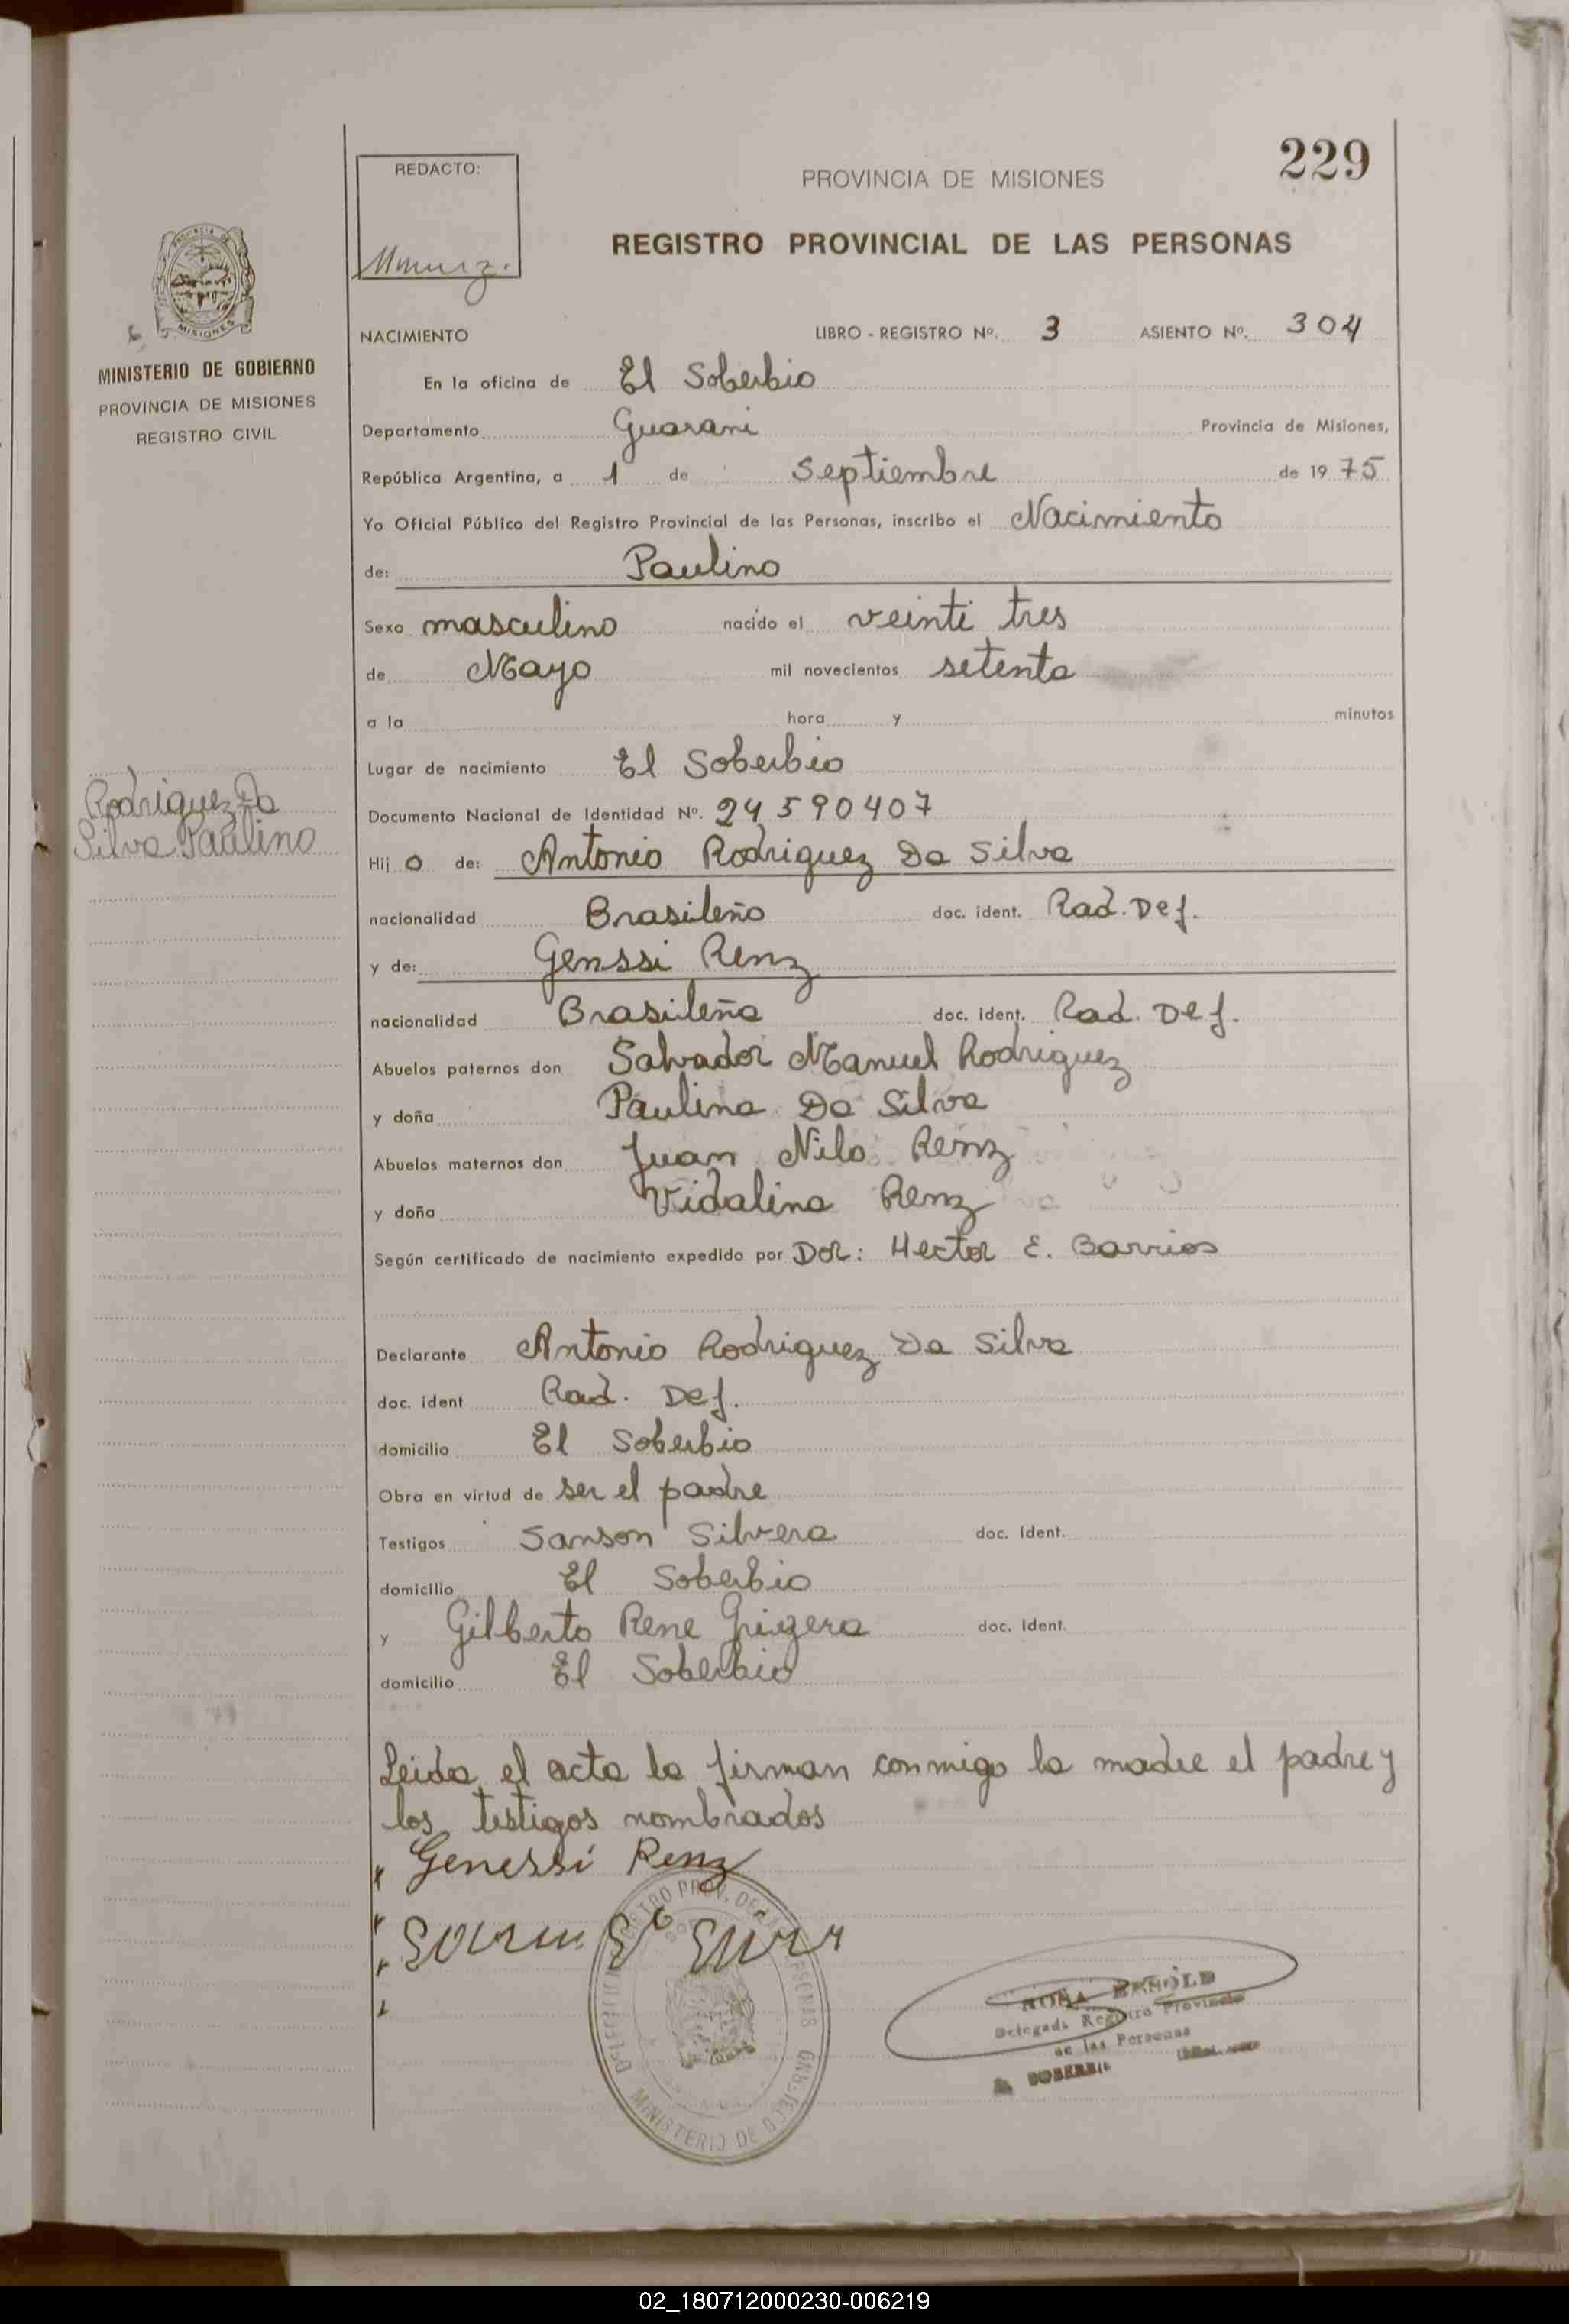 229
REDACTO:
PROVINCIA DE MISIONES
REGISTRO PROVINCIAL DE LAS PERSONAS
MISIONES
MINISTERIO DE GOBIERNO
PROVINCIA DE MISIONES
REGISTRO CIVIL
NACIMIENTO LIBRO - REGISTRO Nº. 3 ASIENTO Nº. 304
En la oficina de El Soberbio
Departamento Guarani Provincia de Misiones,
República Argentina, a 1 de Septiembre de 19 75
Yo Oficial Público del Registro Provincial de las Personas, inscribo el Nacimiento
de: Paulino
Sexo masculino nacido el veinti tres
de Mayo mil novecientos setenta
a la hora y minutos
Lugar de nacimiento El Soberbio
Documento Nacional de Identidad Nº. 24 590407
Rodriguez Da
Silva Paulino
Hij o de: Antonio Rodriguez Da Silva
nacionalidad Brasileño doc. ident. Rad. Def.
y de: Genssi Renz
nacionalidad Brasileña doc. ident. Rad. Def.
Abuelos paternos don Salvador Manuel Rodriguez
y doña Paulina Da Silva
Abuelos maternos don Juan Nilo Renz
y doña Vidalina Renz
Según certificado de nacimiento expedido por Dor: Hector E. Barrios
Declarante Antonio Rodriguez Da Silva
doc. ident Rad. Def.
domicilio El Soberbio
Obra en virtud de ser el padre
Testigos Sanson Silvera doc. Ident.
domicilio El Soberbio
y Gilberto Rene Grigera doc. Ident.
domicilio El Soberbio
Leida el acta la firman conmigo la madre el padre y
los testigos nombrados
Genessi Renz
MINISTERIO DE GOBIERNO
Delegada Registro Provincial
de las Personas
SOBERBIO
02_180712000230-006219